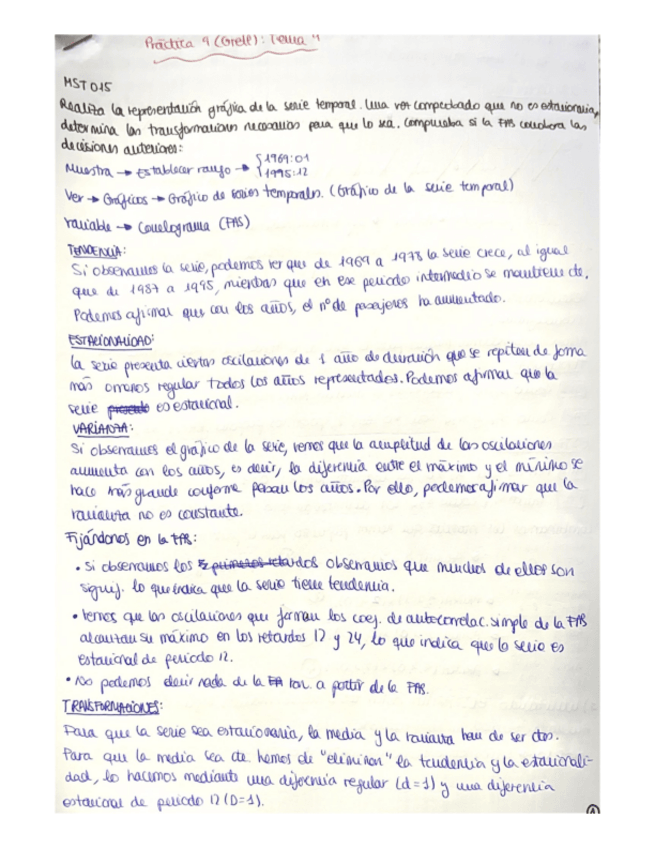 Práctica 9 (Gretl): Tema 4
MST015
Realiza la representación gráfica de la serie temporal. Una vez comprobado que no es estacionaria,
determina las transformaciones necesarias para que lo sea. Comprueba si la FAS corrobora las
decisiones anteriores:
Muestra → Establecer rango → { 1969:01
1995:12
Ver → Gráficos → Gráfico de series temporales. (Gráfico de la serie temporal)
Variable → Correlograma (FAS)
TENDENCIA:
Si observamos la serie, podemos ver que de 1969 a 1973 la serie crece, al igual
que de 1987 a 1995, mientras que en ese periodo intermedio se mantiene
Podemos afirmar que con los años, el nº de pasajeros ha aumentado.
ESTACIONALIDAD:
La serie presenta ciertas oscilaciones de 1 año de duración que se repiten de forma
más o menos regular todos los años representados. Podemos afirmar que la
serie es estacional.
VARIANZA:
Si observamos el gráfico de la serie, vemos que la amplitud de las oscilaciones
aumenta con los años, es decir, la diferencia entre el máximo y el mínimo se
hace más grande conforme pasan los años. Por ello, podemos afirmar que la
varianza no es constante.
Fijándonos en la FAS:
• Si observamos los primeros retardos observamos que muchos de ellos son
signif. lo que indica que la serie tiene tendencia.
• Vemos que las oscilaciones que forman los coef. de autocorrelac. simple de la FAS
alcanzan su máximo en los retardos 12 y 24, lo que indica que la serie es
estacional de periodo 12.
• No podemos decir nada de la var. a partir de la FAS.
TRANSFORMACIONES:
Para que la serie sea estacionaria, la media y la varianza han de ser ctes.
Para que la media sea cte hemos de "eliminar" la tendencia y la estacionali-
dad, lo hacemos mediante una diferencia regular (d=1) y una diferencia
estacional de periodo 12 (D=1).